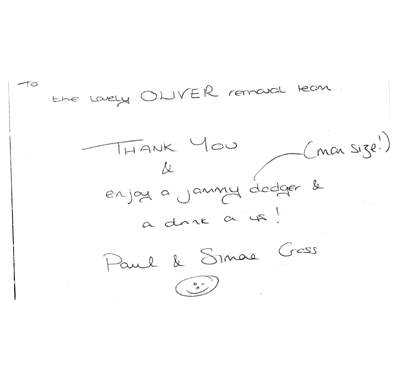 To
the lovely OLIVER removal team
THANK YOU
&
(man size!)
enjoy a jammy dodger &
a drink a us!
Paul & Simone